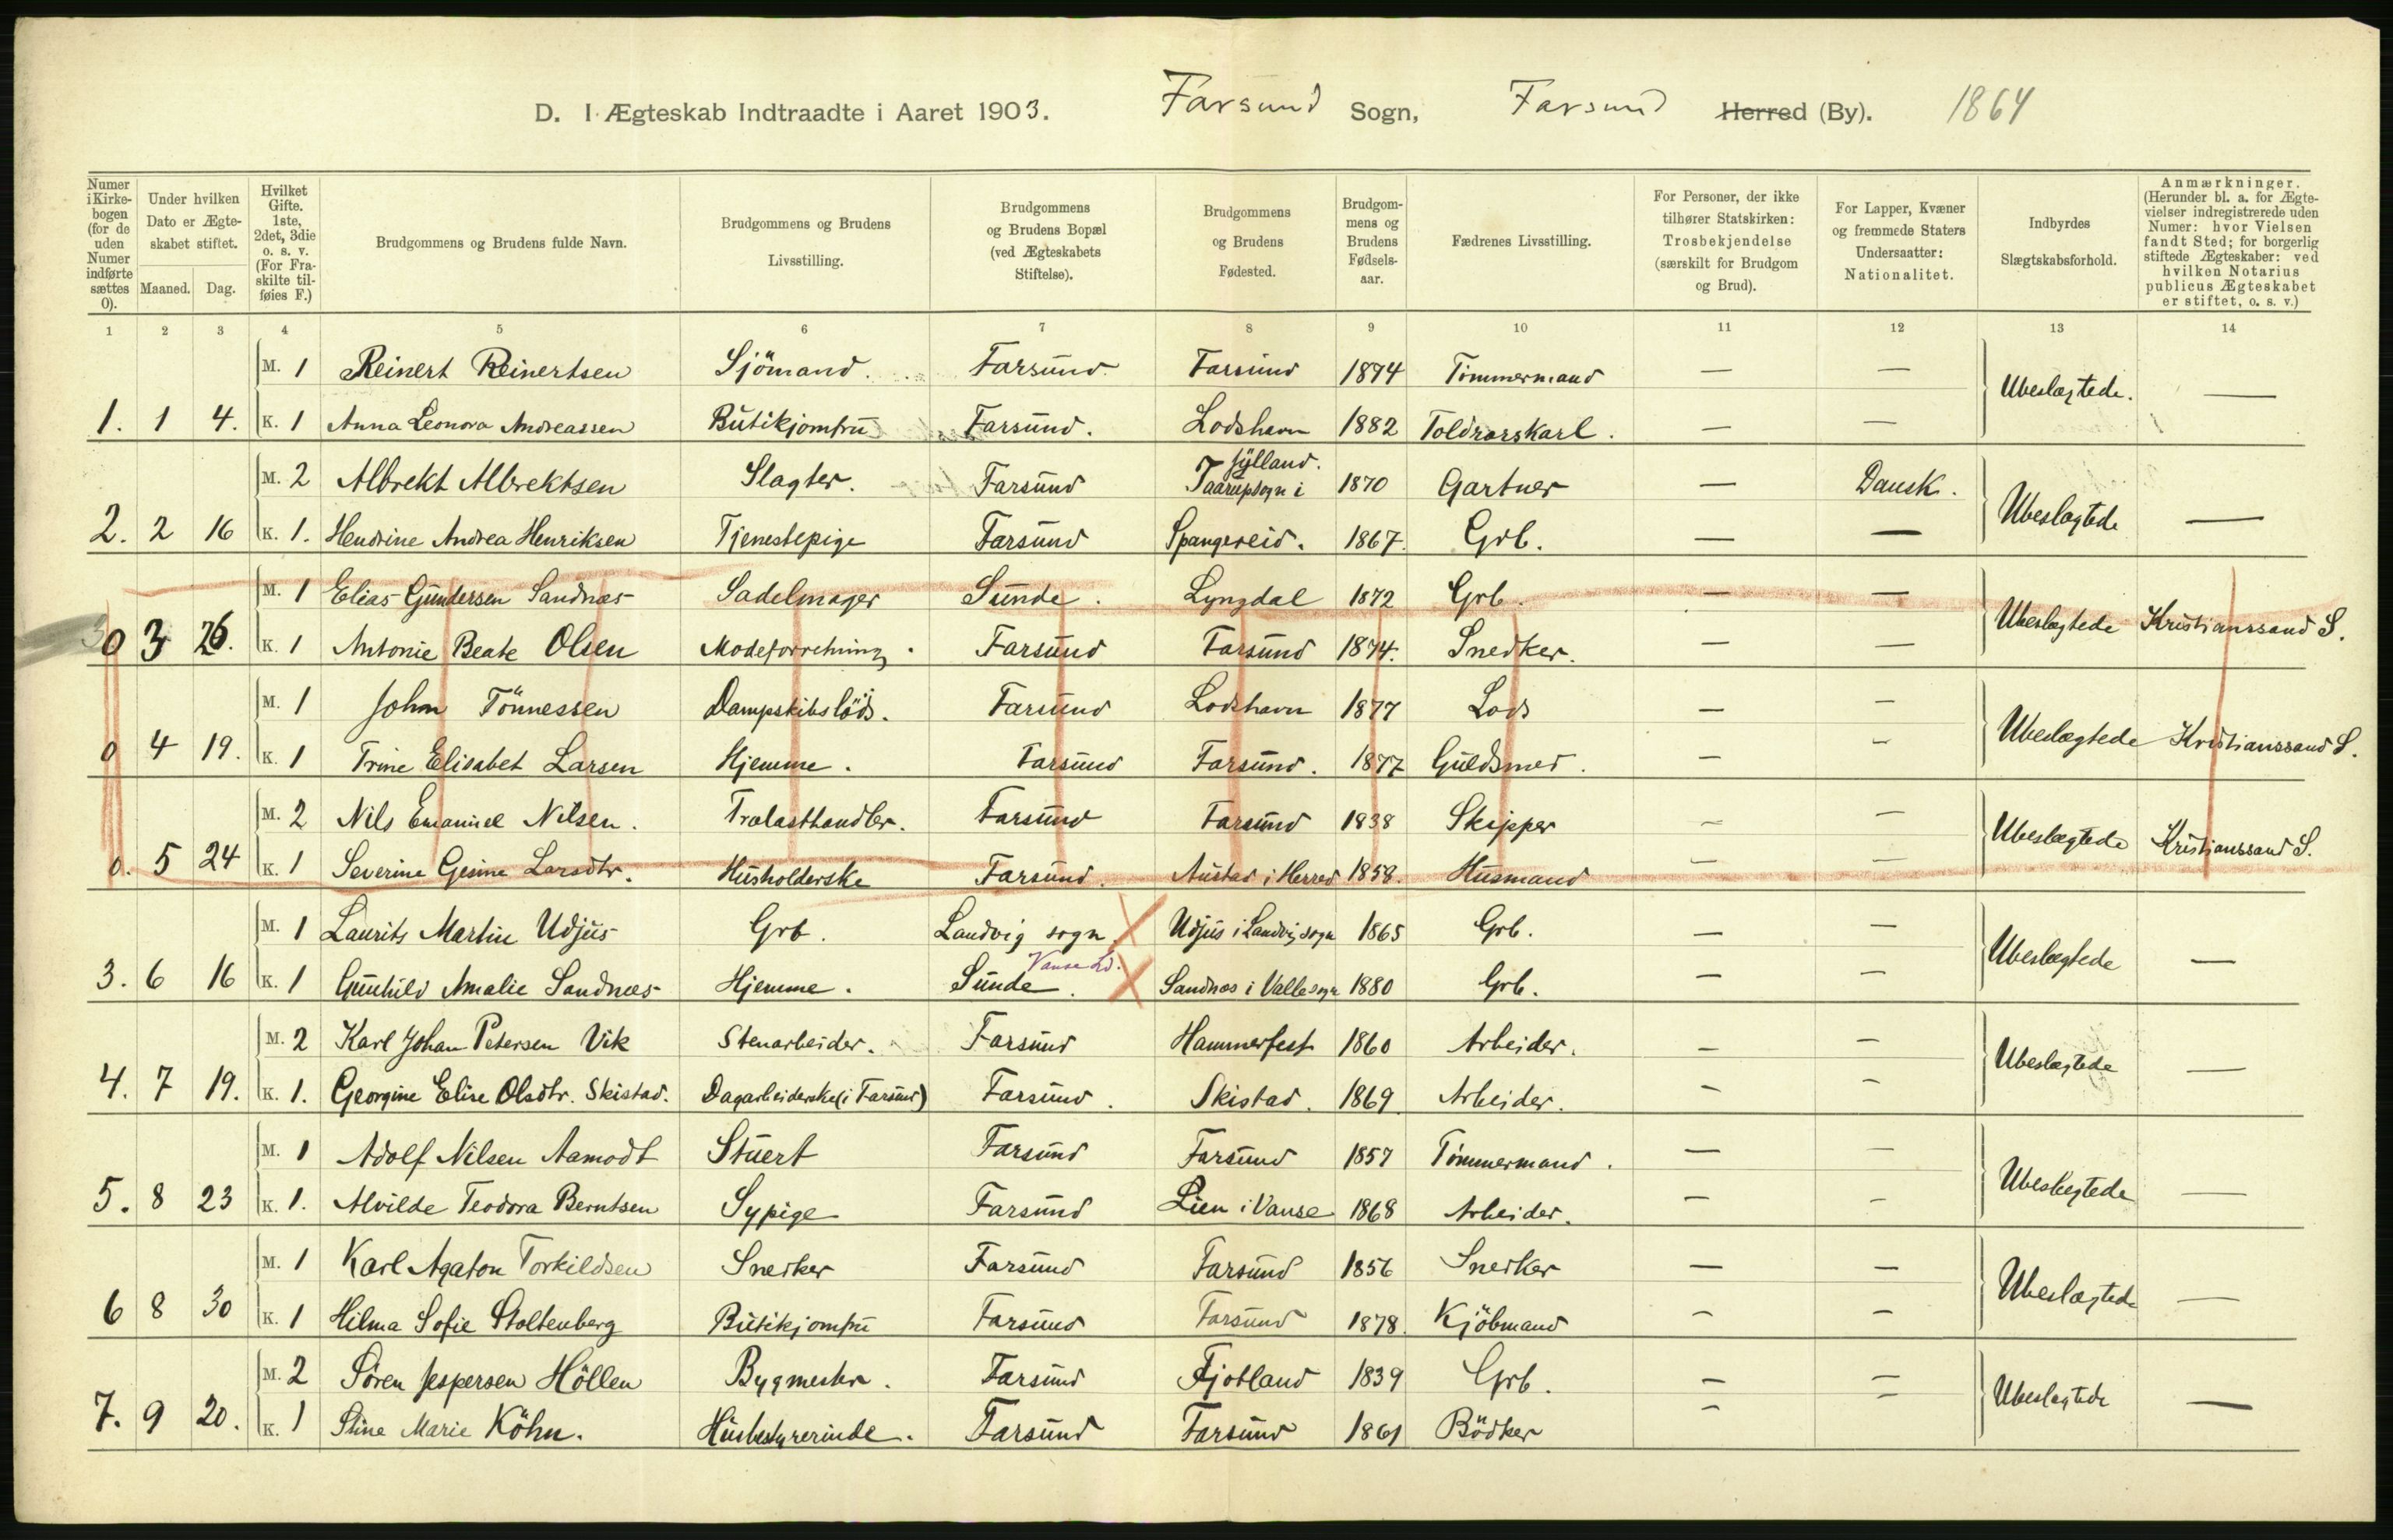 D. I Ægteskab Indtraadte i Aaret 1903. Farsund Sogn, Farsund Herred (By). 1864
Numer i Kirke-bogen (for de uden Numer indførte sættes 0).
Under hvilken Dato er Ægte-skabet stiftet.
Maaned. Dag.
Hvilket Gifte. 1ste, 2det, 3die o. s. v. (For Fra-skilte til-føies F.)
Brudgommens og Brudens fulde Navn.
Brudgommens og Brudens Livsstilling.
Brudgommens og Brudens Bopæl (ved Ægteskabets Stiftelse).
Brudgommens og Brudens Fødested.
Brudgom-mens og Brudens Fødsels-aar.
Fædrenes Livsstilling.
For Personer, der ikke tilhører Statskirken: Trosbekjendelse (særskilt for Brudgom og Brud).
For Lapper, Kvæner og fremmede Staters Undersaatter: Nationalitet.
Indbyrdes Slægtskabsforhold.
Anmærkninger. (Herunder bl. a. for Ægte-vielser indregistrerede uden Numer: hvor Vielsen fandt Sted; for borgerlig stiftede Ægteskaber: ved hvilken Notarius publicus Ægteskabet er stiftet, o. s. v.)
1 2 3 4 5 6 7 8 9 10 11 12 13 14
M. 1 Reinert Reinertsen Sjömand. Farsund Farsund 1874 Tömmermand — — Ubeslægtede. —
1. 1 4. K. 1 Anna Leonora Andreassen Butikjomfru Farsund. Lodshavn 1882 Toldrorskarl. — —
M. 2 Albrekt Albrektsen Slagter. Farsund Taarupsogn i Jylland. 1870 Gartner — Dansk. Ubeslægtede —
2. 2 16 K. 1. Hendrine Andrea Henriksen Tjenestepige Farsund Spangereid. 1867. Grb. — —
M. 1 Elias Gundersen Sandnæs Sadelmager Sunde. Lyngdal 1872 Grb. — — Ubeslægtede Kristianssand S.
0 3 26. K. 1 Antonie Beate Olsen Modeforretning. Farsund Farsund 1874. Snedker. — —
M. 1 John Tönnessen Dampskibslöds. Farsund Lodshavn 1877 Lods — — Ubeslægtede Kristianssand S.
0 4 19. K. 1 Trine Elisabet Larsen Hjemme. Farsund Farsund. 1877 Guldsmed. — —
M. 2 Nils Emanuel Nilsen. Trælasthandler. Farsund Farsund 1838 Skipper — — Ubeslægtede Kristianssand S.
0. 5 24 K. 1 Severine Gesine Larsdtr. Husholderske Farsund. Austad i Herred 1858. Husmand — —
M. 1 Laurits Martin Udjus Grb. Landvig sogn. Udjus i Landvigsogn 1865 Grb. — — Ubeslægtede —
Vanse Ld.
3. 6 16 K. 1 Gunhild Amalie Sandnæs Hjemme. Sunde. Sandnæs i Valle sogn 1880 Grb. — —
M. 2 Karl Johan Petersen Vik Stenarbeider. Farsund Hammerfest 1860 Arbeider. — — Ubeslægtede —
4. 7 19. K. 1. Georgine Elise Olsdtr. Skistad. Dagarbeiderske (i Farsund) Farsund. Skistad. 1869. Arbeider. — —
M. 1 Adolf Nilsen Aamodt Stuert Farsund Farsund 1857 Tömmermand. — — Ubeslægtede —
5. 8 23 K. 1. Alvilde Teodora Berntsen Sypige Farsund Lien i Vanse 1868 Arbeider. — —
M. 1 Karl Agaton Torkildsen Snedker Farsund Farsund 1856 Snedker — — Ubeslægtede —
6 8 30 K. 1 Hilma Sofie Stoltenberg Butikjomfru Farsund Farsund 1878. Kjöbmand — —
M. 2 Sören Jespersen Höllen Bygmester. Farsund Fjotland 1839 Grb. — — Ubeslægtede —
7. 9 20. K. 1 Stine Marie Köhn. Husbestyrerinde. Farsund Farsund 1861 Bödker — —